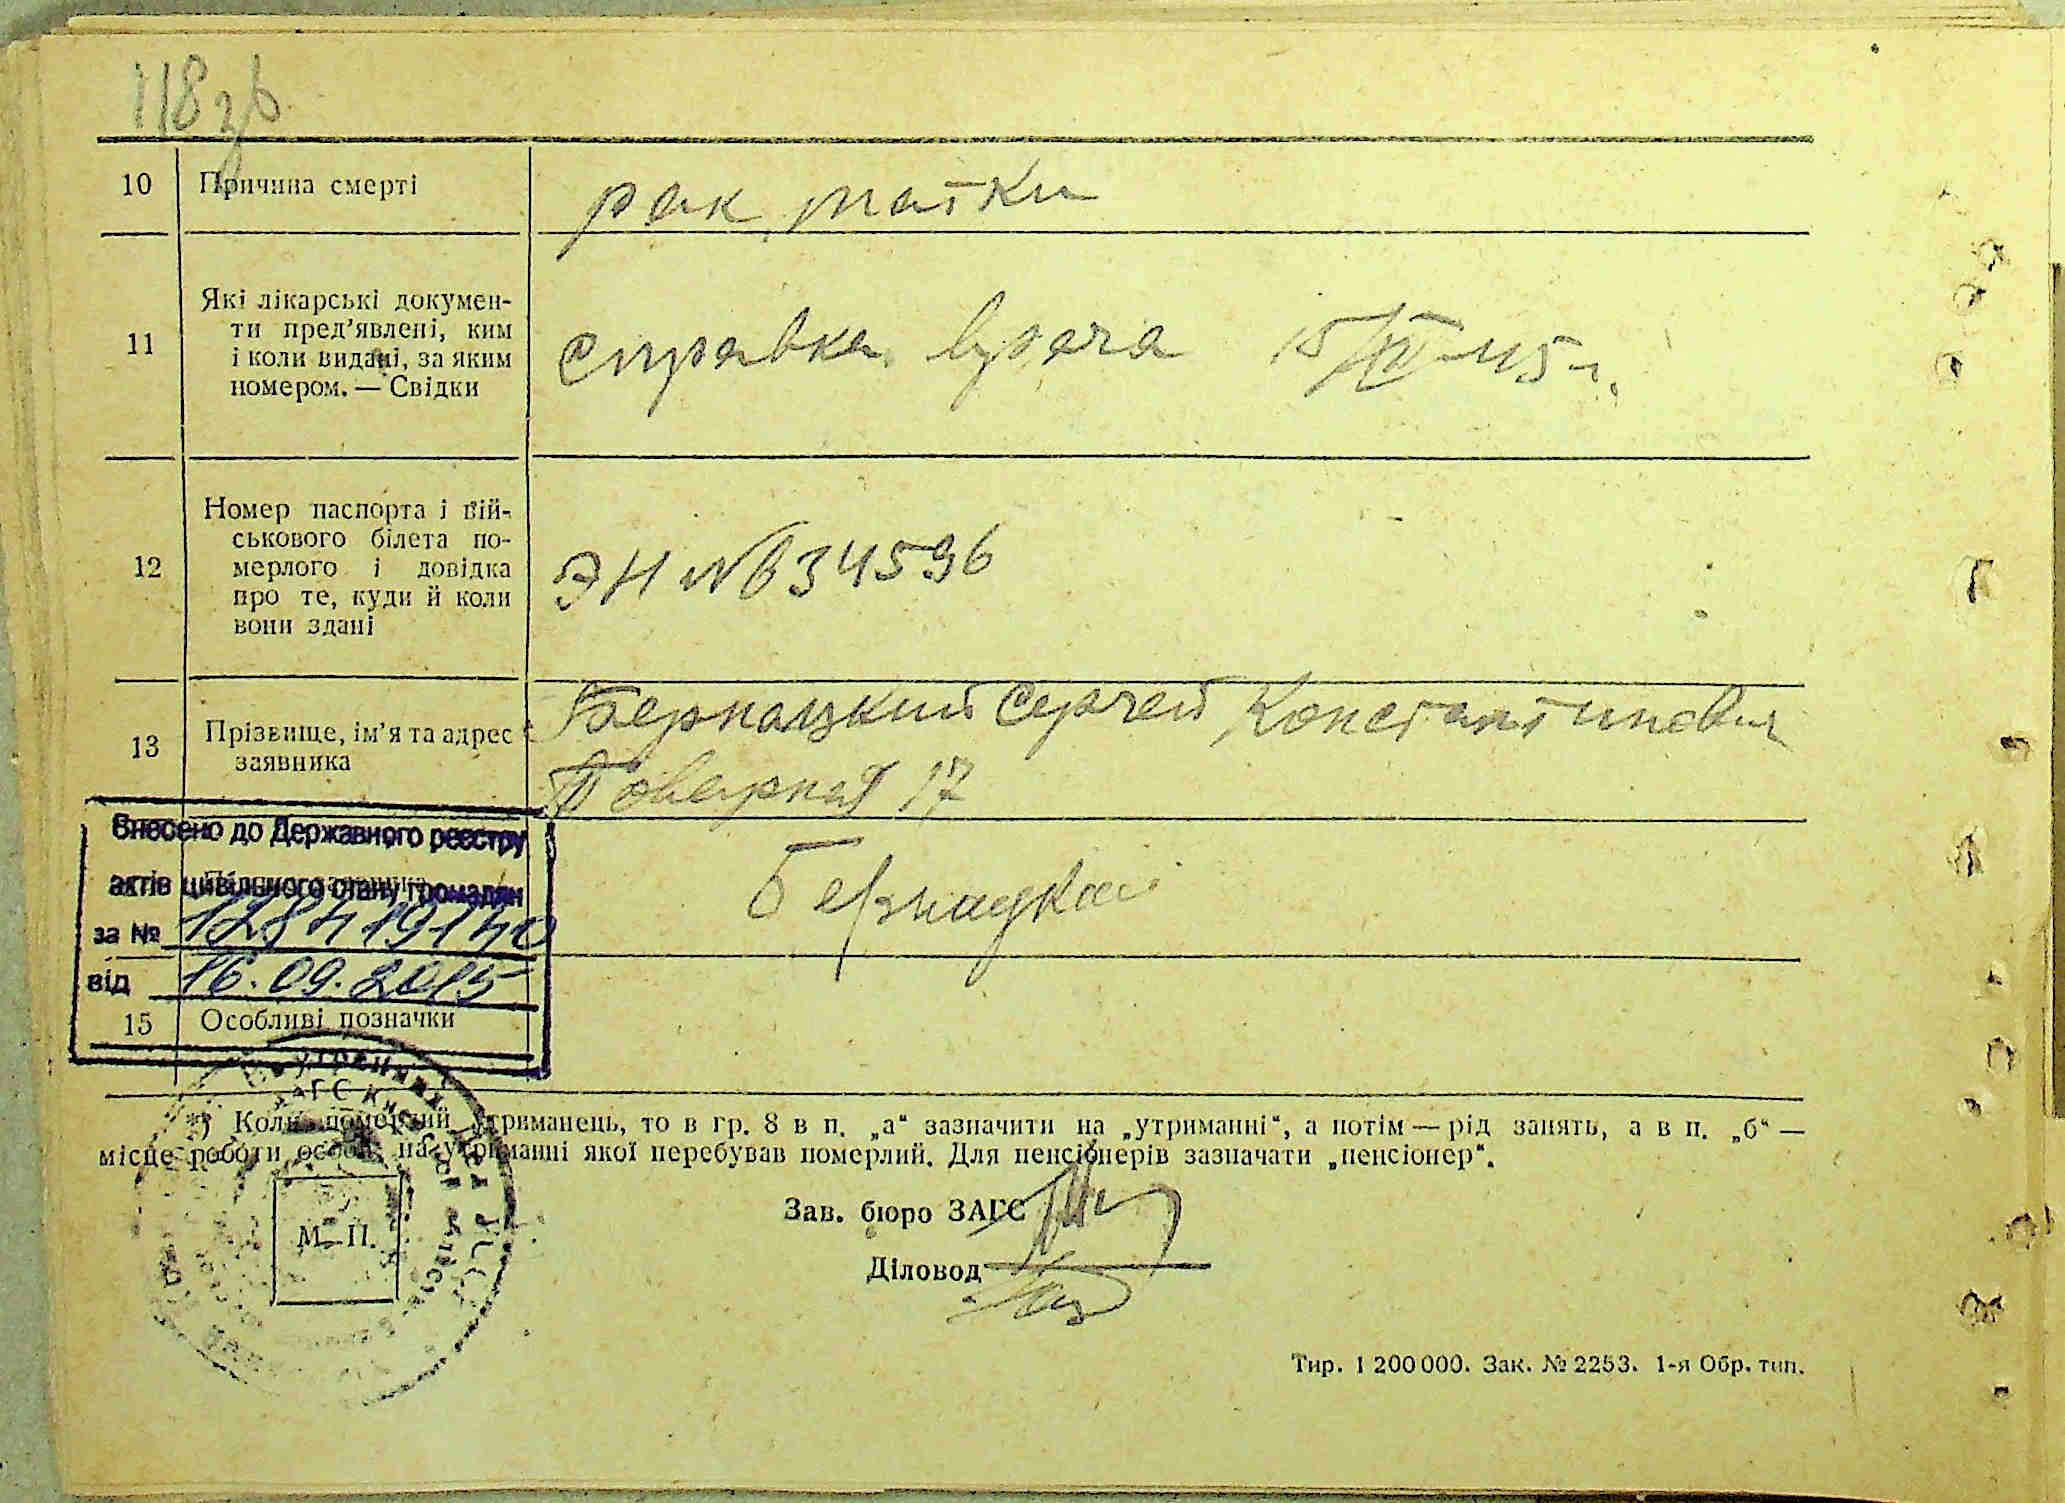 118зв
10 Причина смерті рак матки
11 Які лікарські докумен-
ти пред’явлені, ким
і коли видані, за яким
номером. — Свідки
справка врача 15/IV-45 г.
12 Номер паспорта і вій-
ськового білета по-
мерлого і довідка
про те, куди й коли
вони здані
ЭН № 634596
13 Прізвище, ім’я та адрес
заявника
Бернацкий Сергей Константинович
Товарная 17
Внесено до Державного реєстру
актів цивільного стану громадян
за № 128419140
від 16.09.2015
15 Особливі позначки
*) Коли померлий утриманець, то в гр. 8 в п. „а“ зазначити на „утриманні“, а потім — рід занять, а в п. „б“ —
місце роботи особи, на утриманні якої перебував померлий. Для пенсіонерів зазначати „пенсіонер“.
М. П.
Зав. бюро ЗАГС
Діловод
Тир. 1 200 000. Зак. № 2253. 1-я Обр. тип.